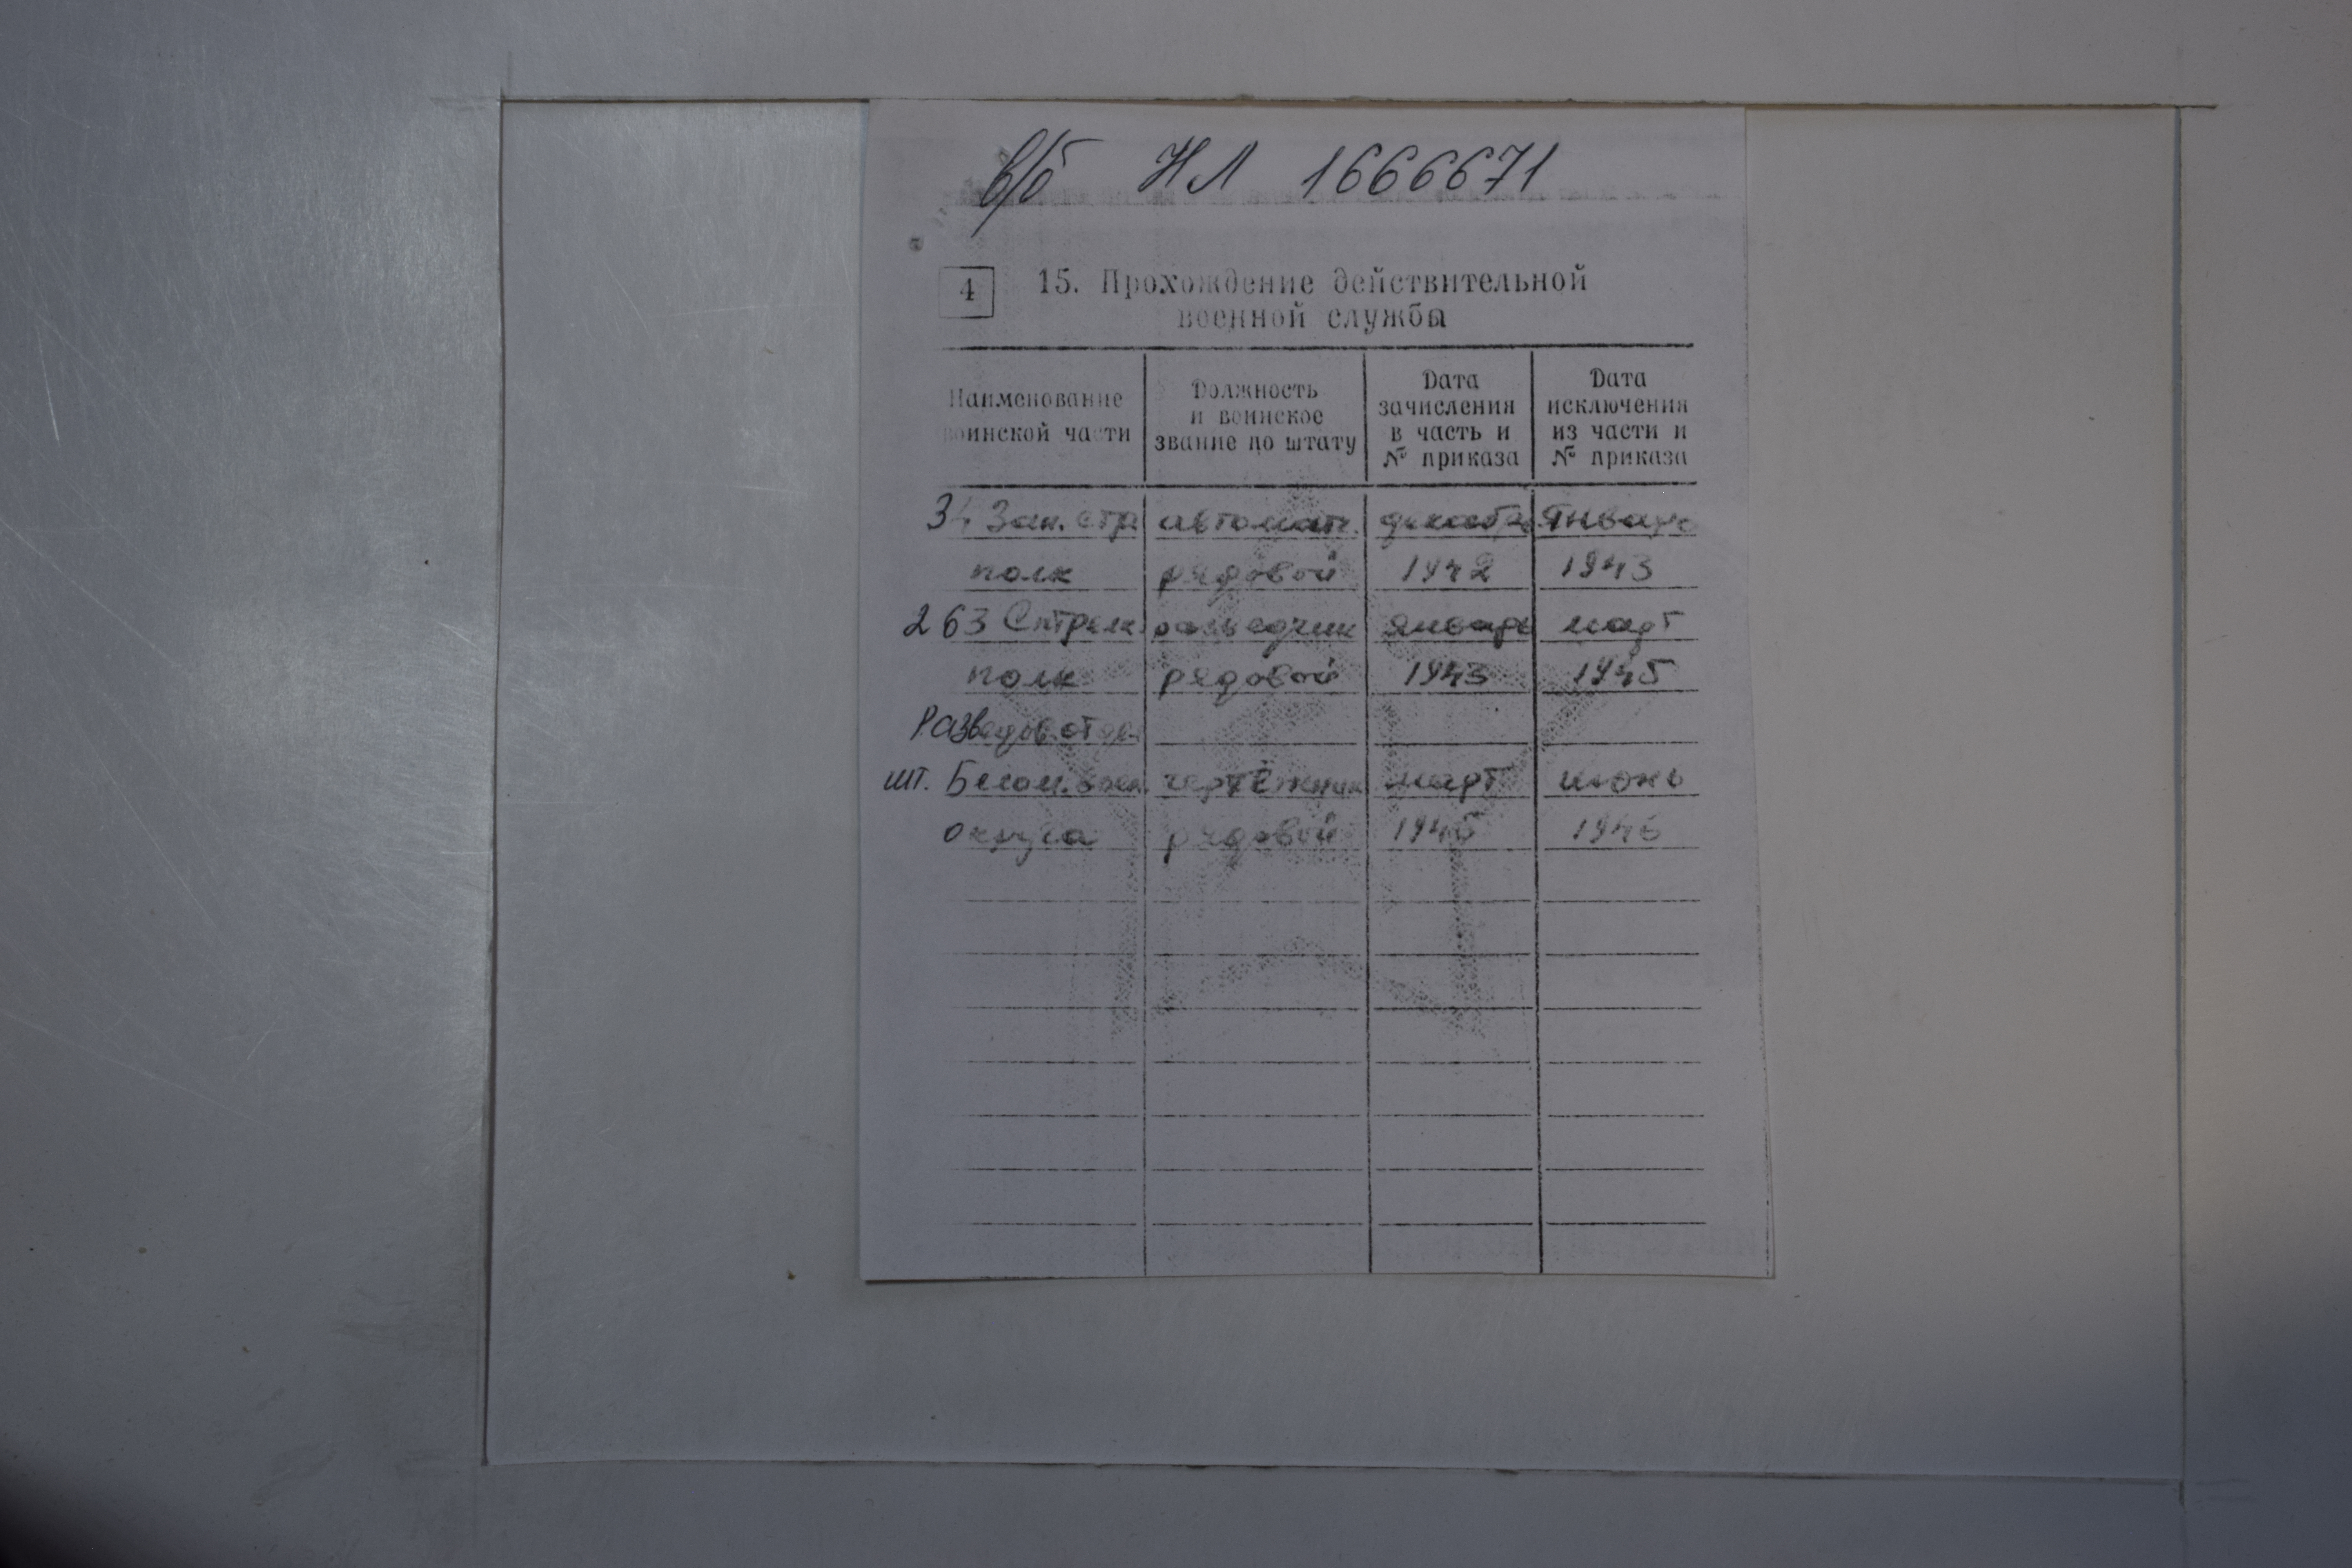 в/б НЛ 1666671
4
15. Прохождение действительной
военной службы
Наименование
воинской части
Должность
и воинское
звание по штату
Дата
зачисления
в часть и
№ приказа
Дата
исключения
из части и
№ приказа
34 Зап. стр автомат. декабрь январь
полк рядовой 1942 1943
263 Стрелк. разведчик январь март
полк рядовой 1943 1945
Разведов. отдел
шт. Белом. воен. чертёжник март июнь
округа рядовой 1945 1946